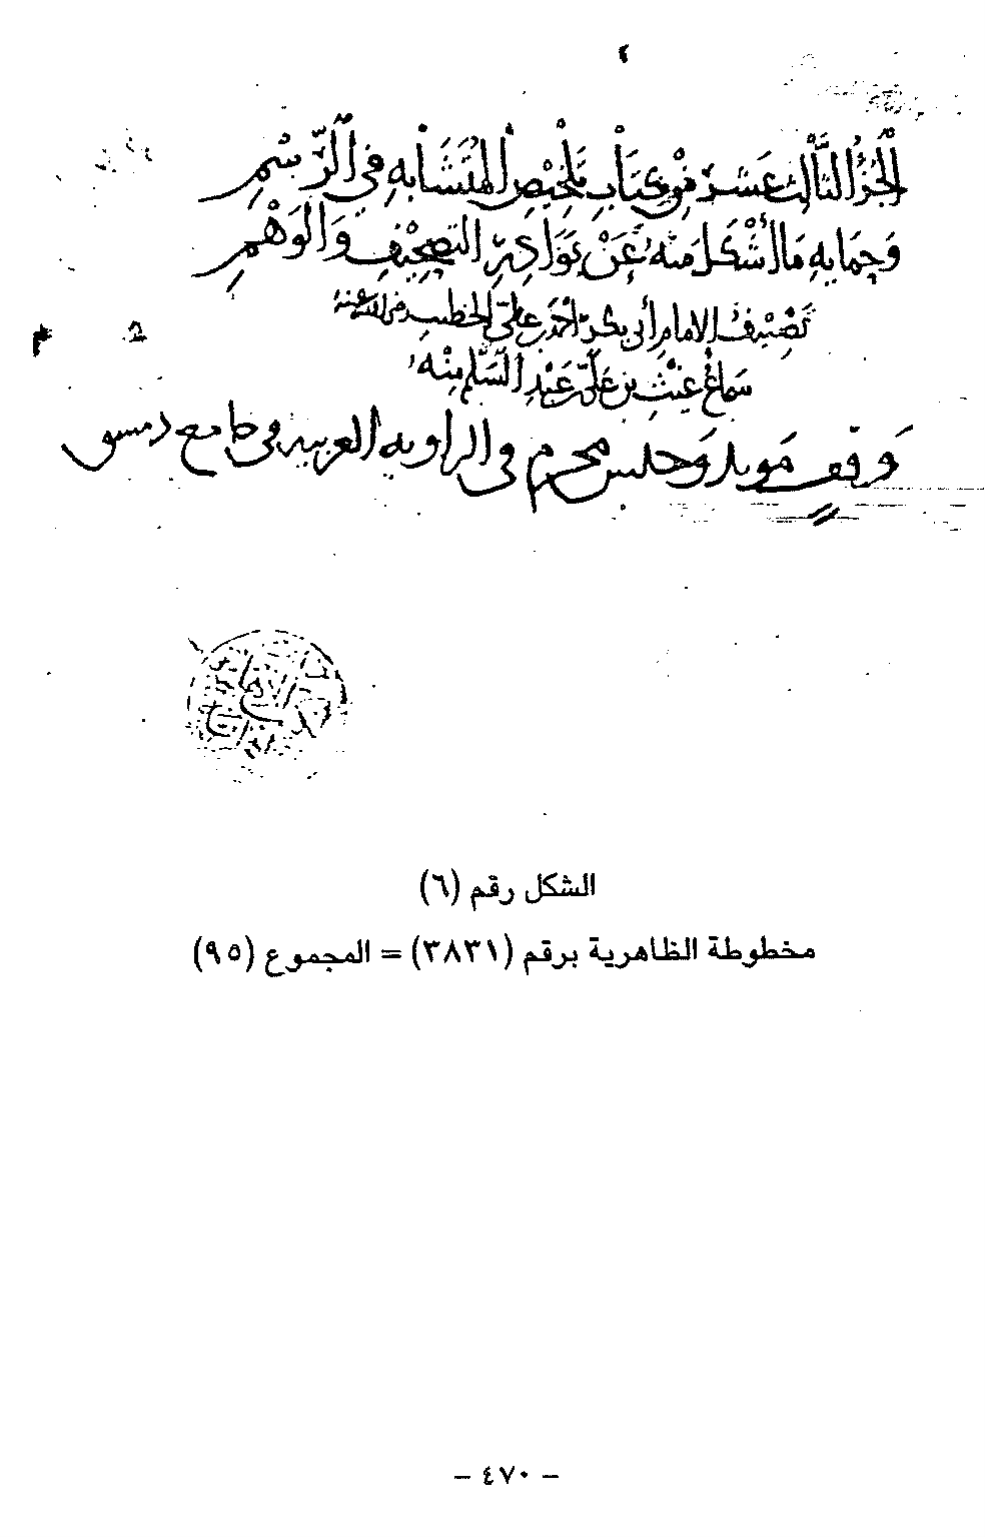 الجُزْءُ الثَّالِث عَشَر مِنْ كِتَابِ تَلْخِيْصِ المُتَشَابِهِ فِي الرَّسْمِ
وَحِمَايَةِ مَا أُشْكِلَ مِنْهُ عَنْ بَوَادِرِ التَّصْحِيْفِ وَالْوَهْمِ
تَصْنِيْفُ الامام أبي بكر أحمد بن علي الخطيب رضي الله عنه
سَمَاعُ غَيْثِ بن عَلِيّ بن عَبْدِ السَّلَمِ مِنْهُ
وَقف مؤبد وَحبس محرم في الزاوية الغربية في جامع دمشق
الشكل رقم (٦)
مخطوطة الظاهرية برقم (٣٨٣١) = المجموع (٩٥)
– ٤٧٠ –